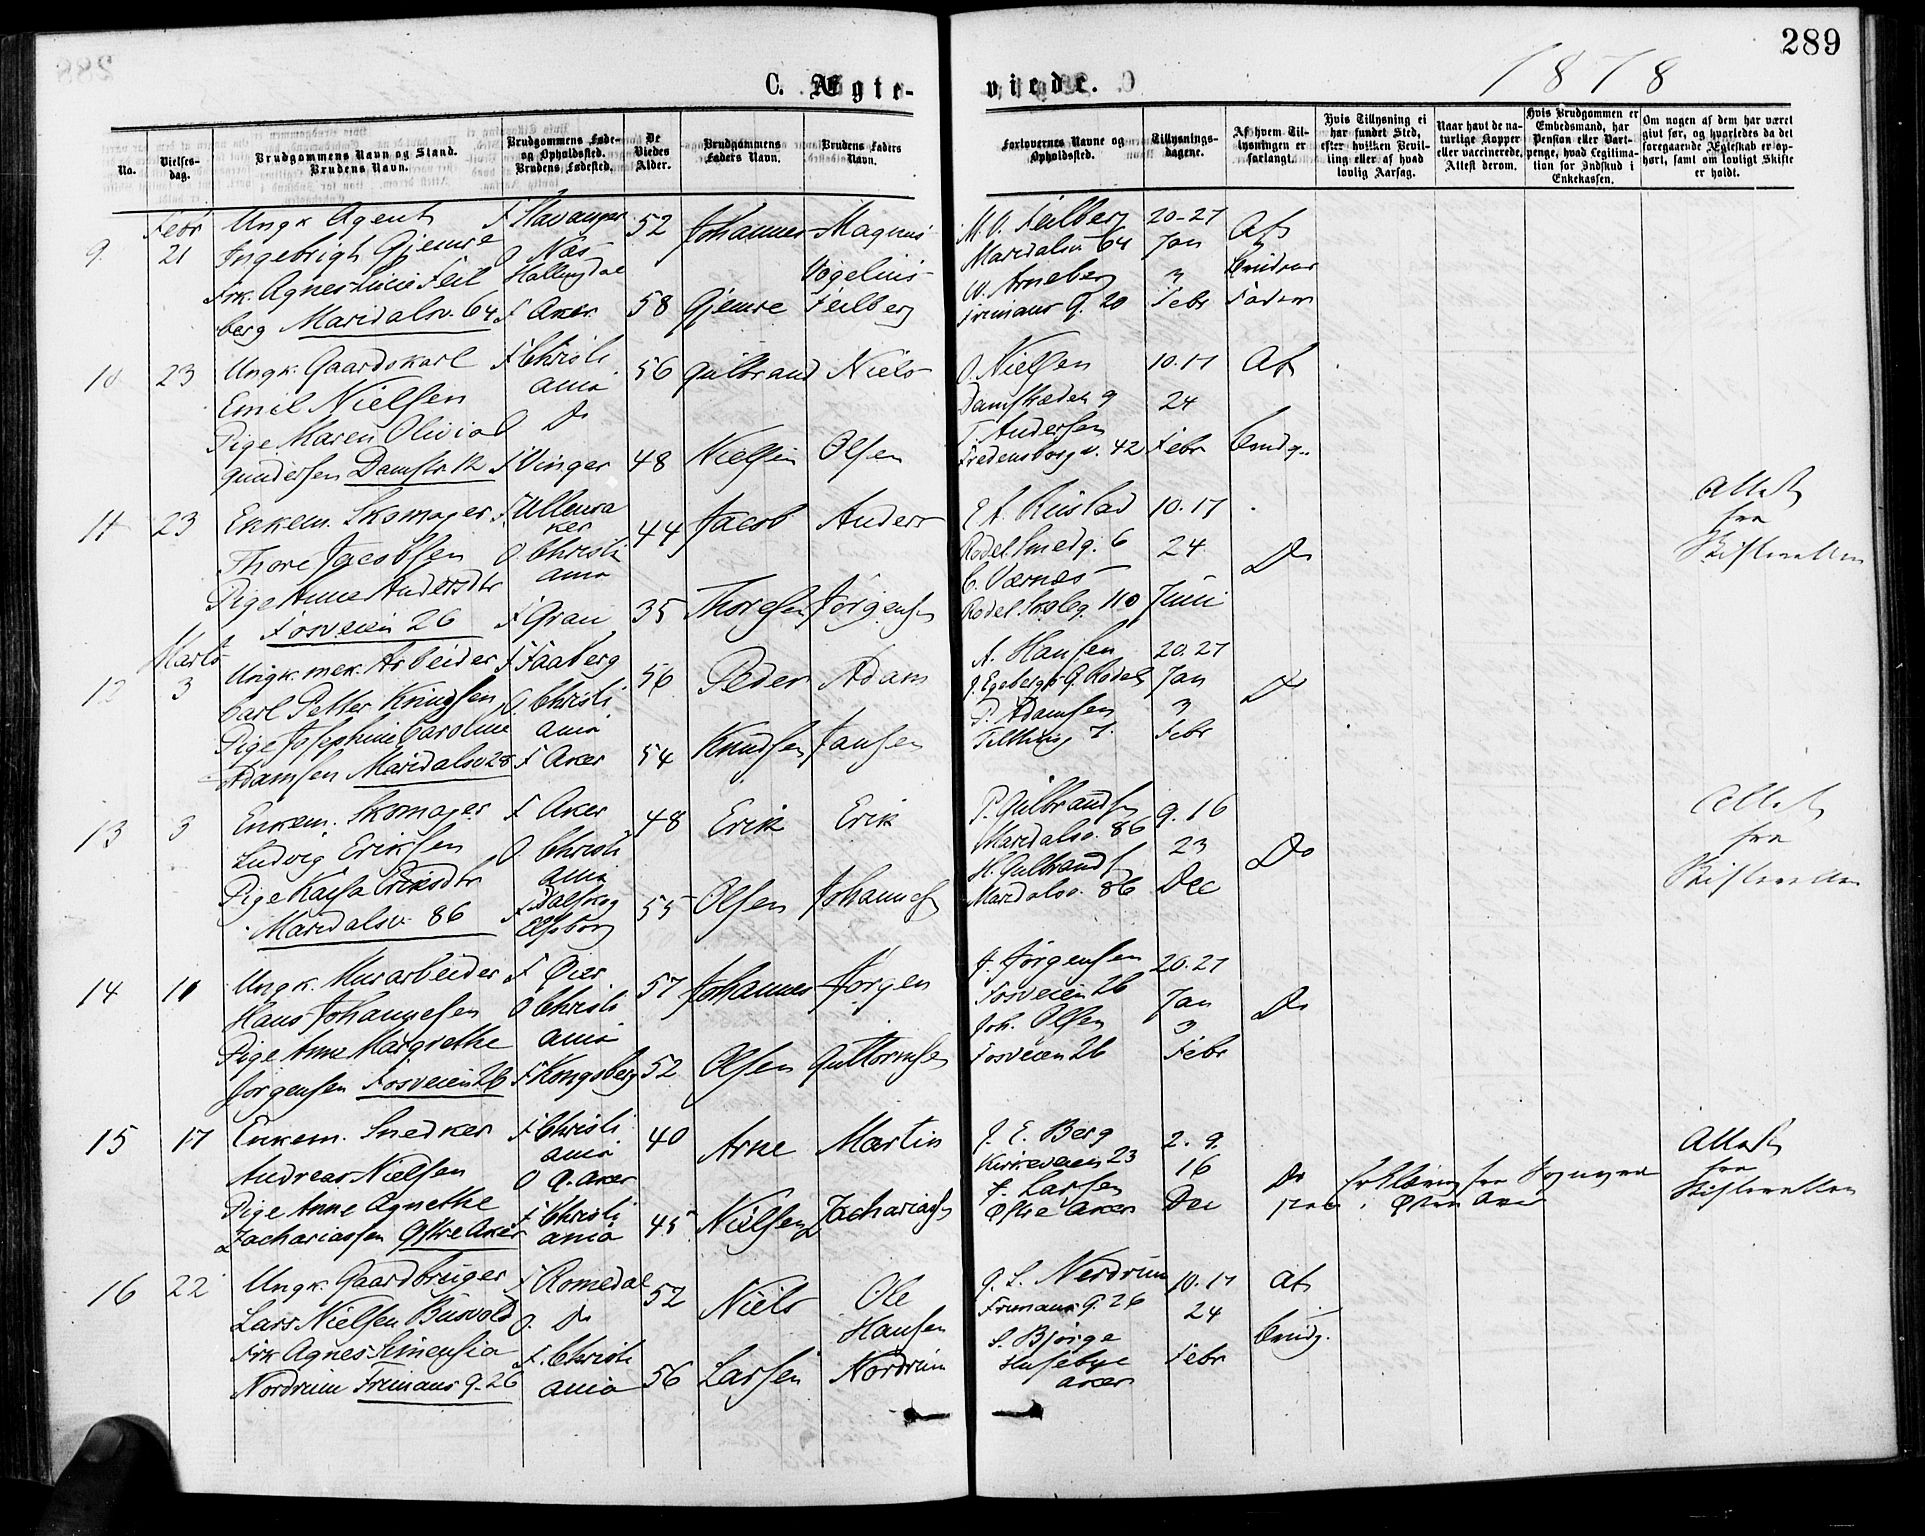 289
1878
C. Ægte-
viede.
No.
Vielses-
dag.
Brudgommens Navn og Stand.
Brudens Navn.
Brudgommens Føde-
og Opholdssted.
Brudens Fødested.
De
Viedes
Alder.
Brudgommens
Faders Navn.
Brudens Faders
Navn.
Forlovernes Navne og
Opholdssted.
Tillysnings-
dagene.
Af hvem Til-
lysningen er
forlangt.
Hvis Tillysning ei
har fundet Sted,
efter hvilken Bevil-
ling eller af hvad
lovlig Aarsag.
Naar havt de na-
turlige Kopper
eller vaccinerede,
Attest derom.
Hvis Brudgommen er
Embedsmand, har
Pension eller Vart-
penge, hvad Legitima-
tion for Indskud i
Enkekassen.
Om nogen af dem har været
givt før, og hvorledes da det
foregaaende Ægteskab er op-
hørt, samt om lovligt Skifte
er holdt.
9 Febr 21
Ungk. Agent
Ingebrigt Gjemre
Frk. Agnes Lucie Feil
berg Maridalsv. 64
F Stavanger
O Næs
Hallingdal
F Aker
52
58
Johannes
Gjemre
Magnus
Vogelius
Feilberg
M. V. Feilberg
Maridalsv. 64
W. Arneberg
Frimans G. 20
20-27
Jan
3
Febr
Af
Brudens
Fader
10 23
Ungk. Gaardskarl
Emil Nielsen
Pige Maren Olivia
Gundersen Damstr. 12
F Christi
ania
O Do
F Vinger
56
48
Gulbrand
Nielsen
Niels
Olsen
O. Nielsen
Damstræden 9
T. Andersen
Fredensborgv. 42
10.17
24
Febr
Af
Brudg.
11 23
Enkem. Skomager
Thore Jacobsen
Pige Anne Andersdtr
Fosveien 26
F Ullensa
ker
O. Christi
ania
F Gran
44
35
Jacob
Thoresen
Anders
Jørgensen
E A. Rustad
Rodel. Smedg. 6
C. Værnæs
10.17
24
Juni
Do
Attest
fra
Skifteretten
12 Marts 3
Ungk. mek. Arbeider
Carl Petter Knudsen
Pige Josephine Caroline
Adamsen Maridalsv 28
F Faaberg
O. Christi
ania
F Aker
56
54
Peder
Knudsen
Adam
Jansen
A. Hansen
J. Egebergs G. Rodel
P. Adamsen
20.27
Jan
3
Febr
Do
13 3
Enkem. Skomager
Ludvig Eriksen
Pige Kaisa Eriksdtr
Maridalsv. 86
F Aker
O. Christi
ania
F Dalskog
Elfsborg
48
55
Erik
Olsen
Erik
Johannes
P. Gulbrandsen
Maridalsv. 86
H. Gulbrands
Maridalsv. 86
9.16
23
Dec
Do
Attest
fra
Skifteretten
14 11
Ungk. Murarbeider
Hans Johannesen
Pige Anne Margrethe
Jørgensen Fosveien 26
F Øier
O Christi
ania
F Kongsberg
57
52
Johannes
Olsen
Jørgen
Guttormsen
J. Jørgensen
Fosveien 26
Joh. Olsen
Fosveien 26
20.27
Jan
3
Febr
Do
15 17
Enkem. Snedker
Andreas Nielsen
Pige Anne Agnethe
Zachariassen Østre Aker
F Christi
ania
O Ø. Aker
F Christi
ania
40
45
Arne
Nielsen
Martin
Zachariasen
J. E. Berg
Kirkeveien 23
F. Larsen
Østre Aker
2. 9.
16
Dec
Do
Erklæring fra Sogneprest i Østre Aker
Attest
fra
Skifteretten
16 22
Ungk. Gaardbruger
Lars Nielsen Busvold
Frk Agnes Simensia
Nordrum Frimans G. 26
F Romedal
O. Do
F. Christi
ania
52
56
Niels
Larsen
Ole
Hansen
Nordrum
G. S. Nordrum
Frimans G. 26
S. Bjørge
Husebye
Aker
10.17
24
Febr
Af
Brudg.